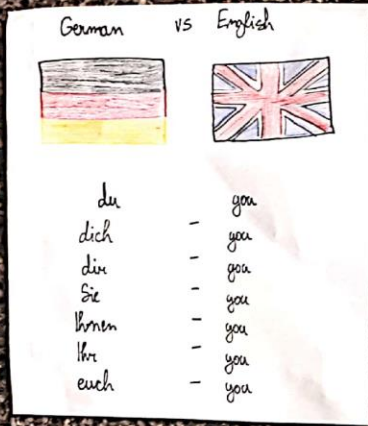 German vs English
du you
dich - you
dir - you
Sie - you
Ihnen - you
Ihr - you
euch - you